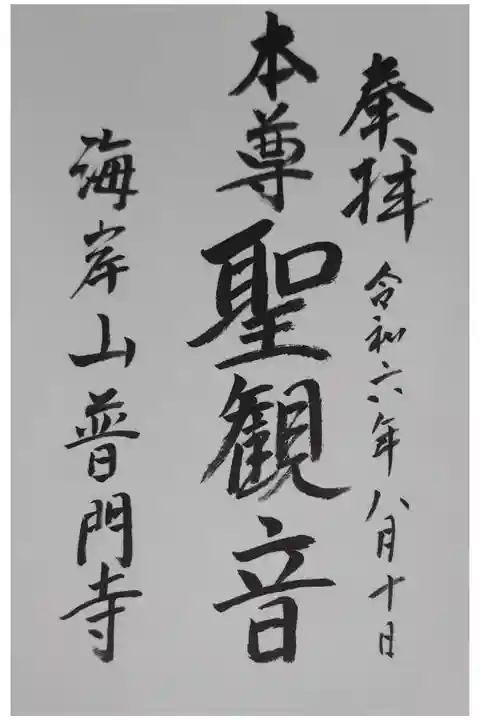 奉拝 令和六年八月十日
本尊 聖観音
海岸山普門寺